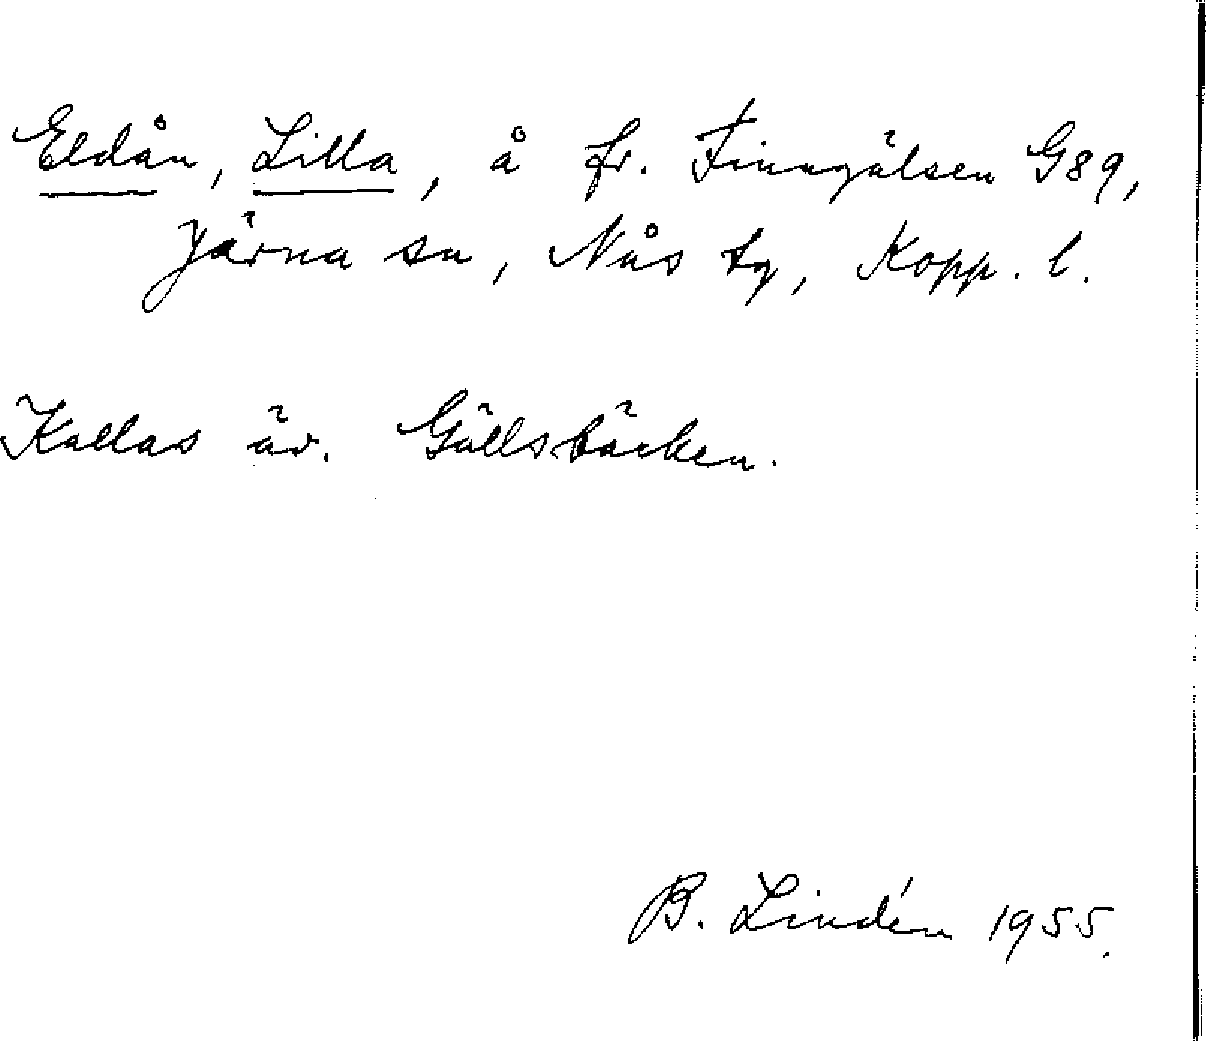 Eldån, Lilla, å fr. Finngälsen G89,
Järna sn, Nås tg, Kopp. l.
Kallas äv. Gällsbäcken.
B. Lindén 1955.